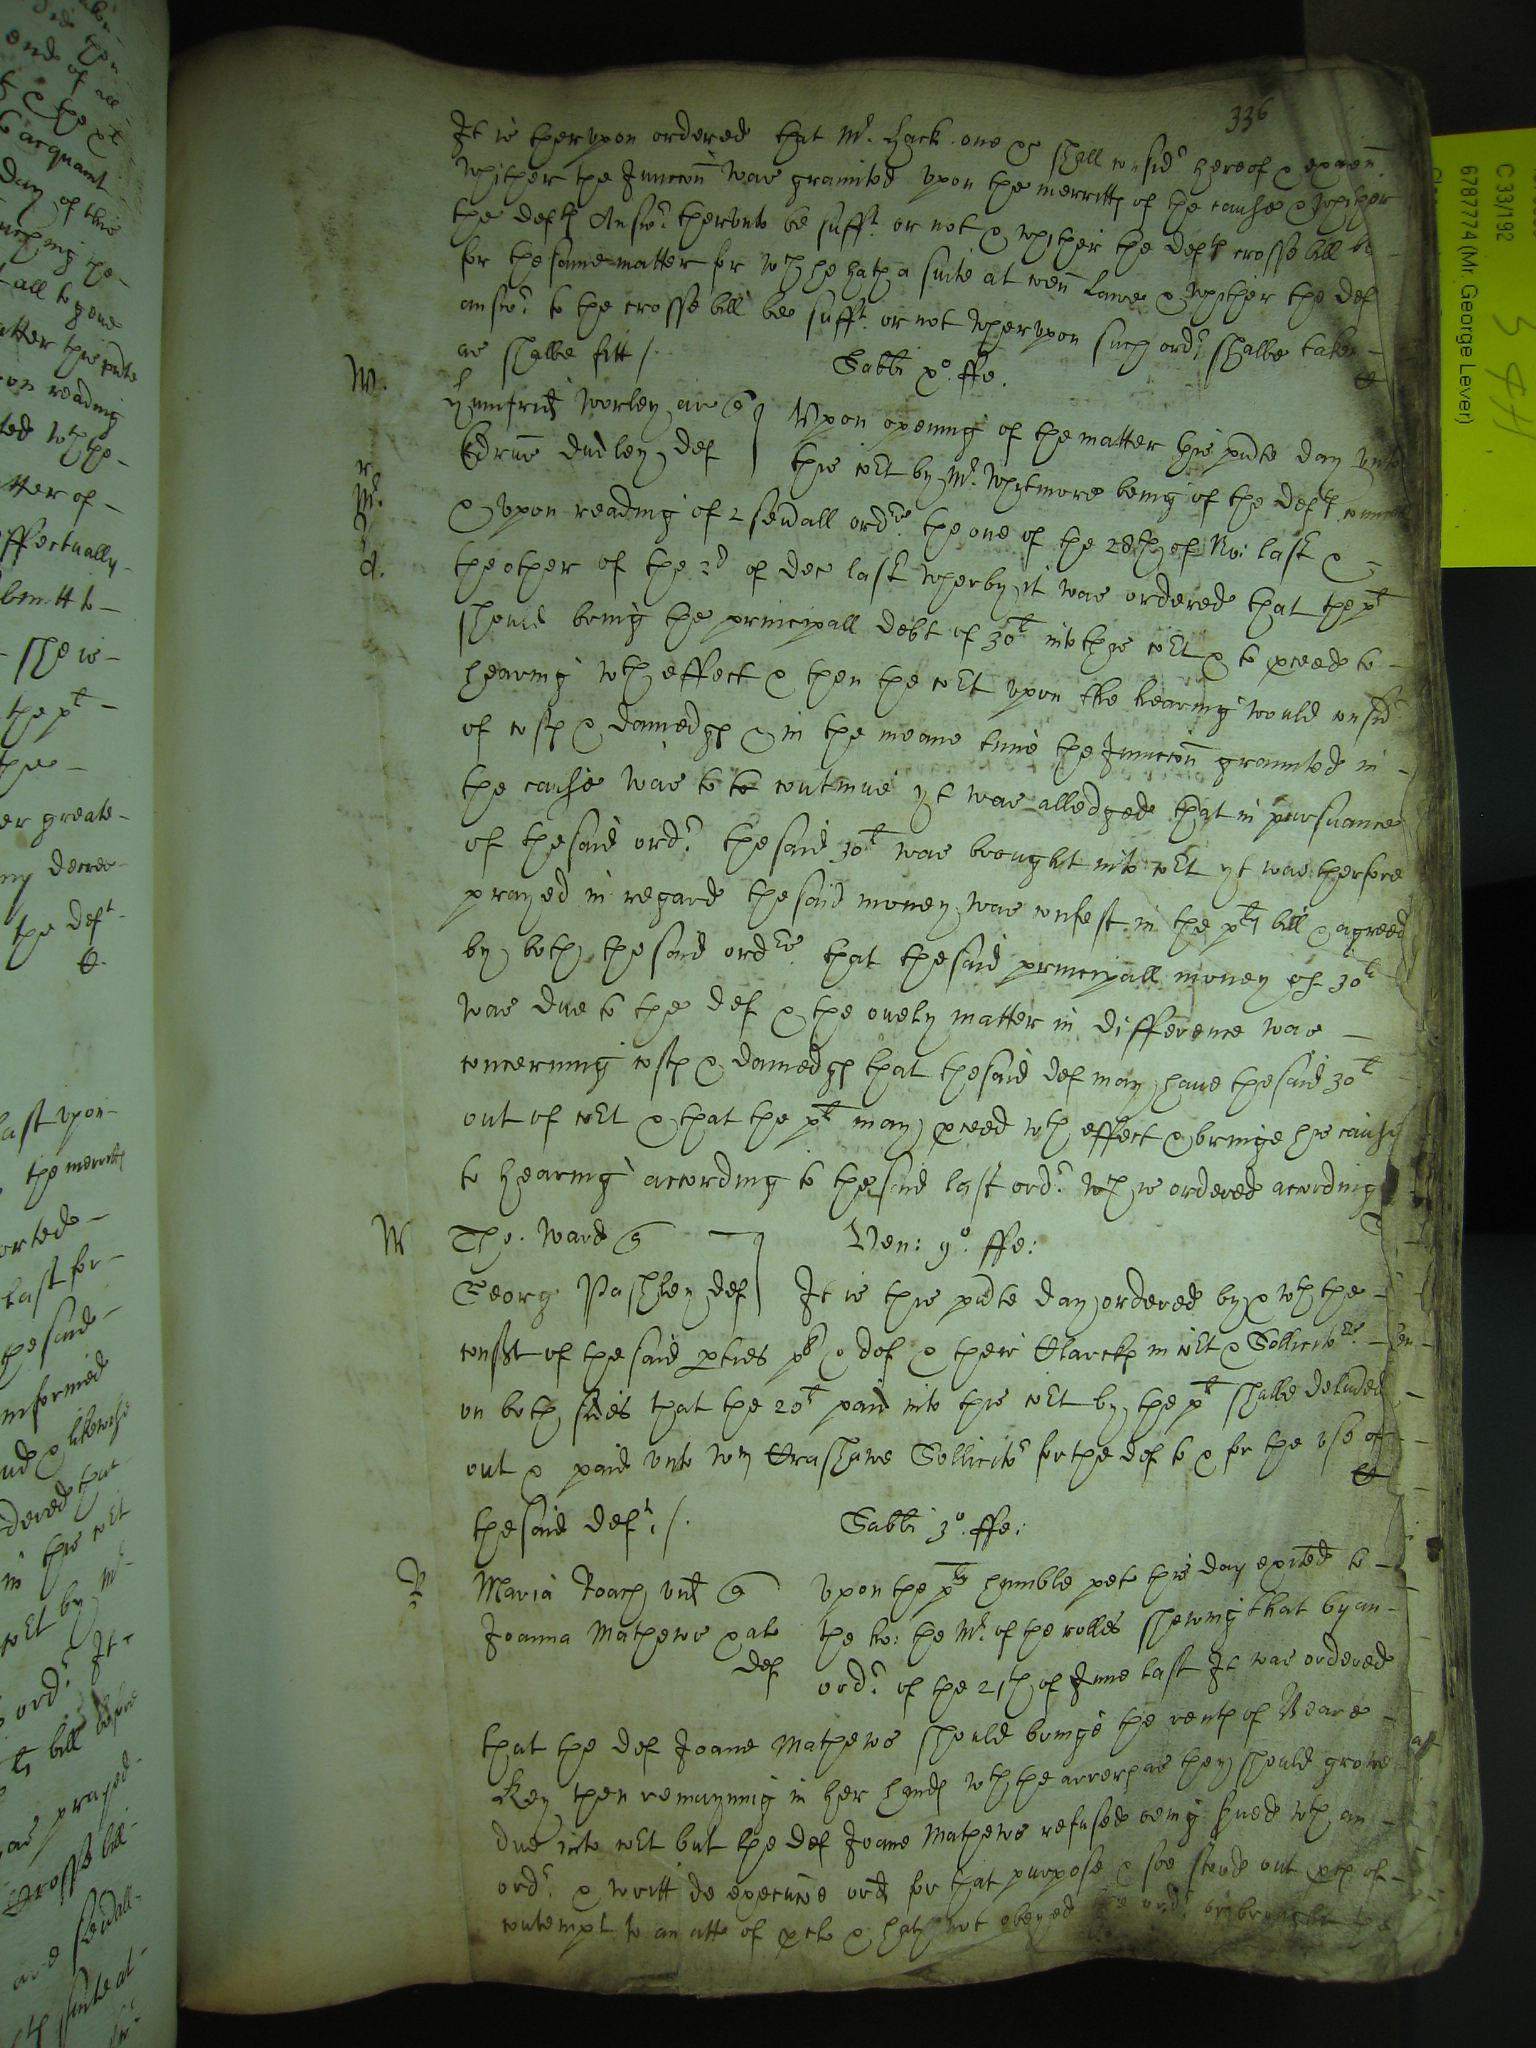 336
It is therupon ordered that Mr. Lack one &c shall consider hereof & examine
Whither the Junccon was graunted upon the merritts of the cause & whither
the defts Answr. therunto be sufft. or not & whither the defts crosse bill be
for the same matter for wch he hath a suite at comon Lawe & whither the def
answr. to the crosse bill be sufft. or not wherupon such ordr. shalbe taken
as shalbe fitt /.
Sabbi xo. ffe.
W.
Humfridus Worley ar quer
Edrus Dudley def
Upon opening of the matter this pnte day unto
this cort by Mr. Whitmore being of the defts councell
& upon reading of 2 sevrall ordrs. the one of the 28th of No: last &
the other of the 2d of Dec last wherby it was ordered that the plt
should bring the principall debt of 30l into this cort & to proceed to
hearing wth effect & then the cort upon the hearing would considr
of costs & damedges & in the meane time the Junccon graunted in
the cause was to continue yt was alledged that in pursuance
of the said ordr. the said 30l was brought into cort yt was therfore
prayed in regard the said money was confest in the plts bill & agreed
by both the said ordrs. that the said principall money of 30l
was due to the def & the onely matter in difference was
concerning costs & damedges that the said def may have the said 30l
out of cort & that the plt may proceed wth effect & bringe his cause
to hearing according to the said last ordr. wch is ordered according
W
Tho. Ward quer
Georg Pashley def
Ven: 9o. ffe:
It is this pnte day ordered by & wth the
consent of the said pties plt & def & their Clarcks in cort & Sollicitors.
on both sides that the 20l paid into this cort by the plt shalbe delivred
out & paid unto Wm Crashawe Sollicitor for the def to & for the use of
the said deft. /.
Sabbi 3o. ffe:
R
Maria Roach vid quer
Joanna Mathews & al
def
upon the plts humble peticion this day exited to
the ho: the Mr. of the rolles shewing that by an
ordr. of the 21th of June last It was ordered
that the def Joane Mathews should bringe the rents of Beare
Key then remayning in her hands wth the arrers as they should growe
due into cort but the def Joane Mathews refused being srved wth an
ordr. & writt de execucoe ordis for that purpose & soe stood out pces of
contempt to an att of pcla & hath not obeyed the ordr. or brought the
C 33/192
6787774 (Mr. George Lever)